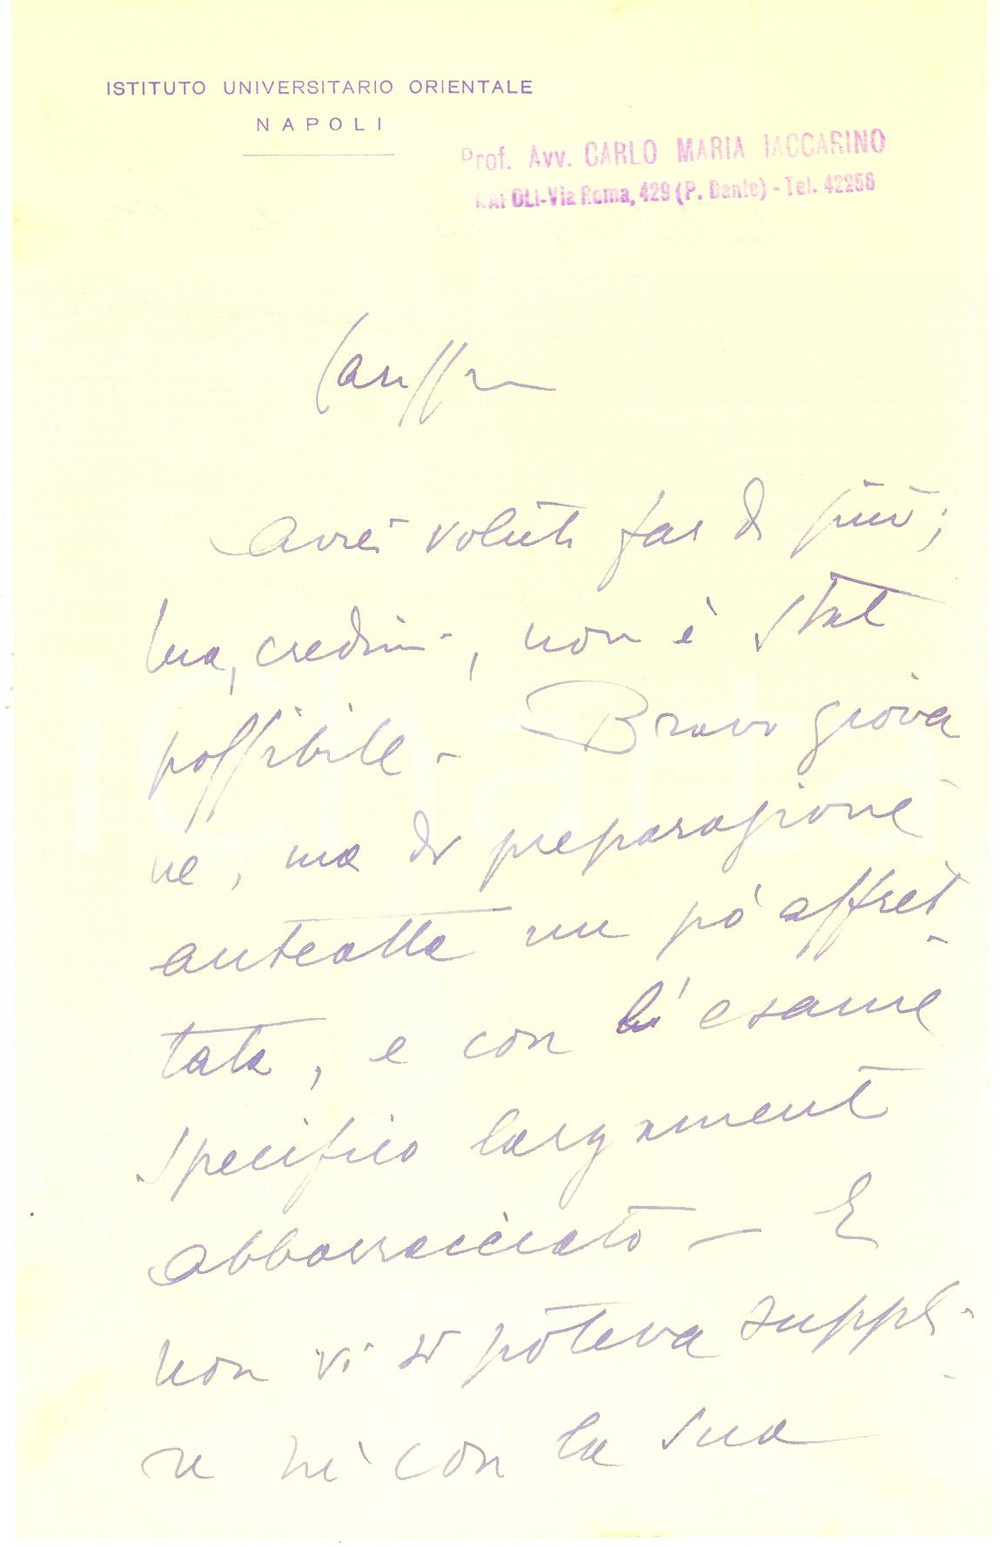 ISTITUTO UNIVERSITARIO ORIENTALE
NAPOLI
Prof. Avv. CARLO MARIA IACCARINO
NAPOLI-Via Roma, 429 (P. Dante) - Tel. 42256
Avrei voluto far di più;
ma, credimi, non è stato
possibile - Bravo giova
ne, ma di preparazione
anteatta un pò affret-
tata, e con l'esame
specifico largamente
abborracciato - E
non vi si poteva suppli-
re nè con la sua
iCharta